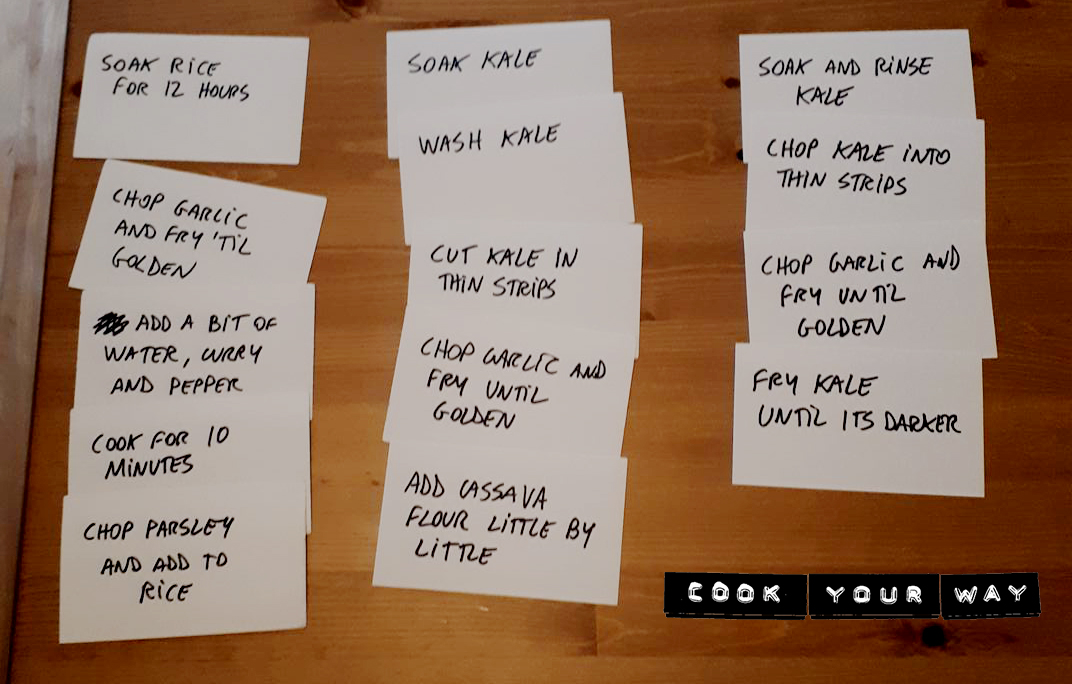 SOAK RICE
FOR 12 HOURS
CHOP GARLIC
AND FRY 'TIL
GOLDEN
ADD A BIT OF
WATER, CURRY
AND PEPPER
COOK FOR 10
MINUTES
CHOP PARSLEY
AND ADD TO
RICE
SOAK KALE
WASH KALE
CUT KALE IN
THIN STRIPS
CHOP GARLIC AND
FRY UNTIL
GOLDEN
ADD CASSAVA
FLOUR LITTLE BY
LITTLE
SOAK AND RINSE
KALE
CHOP KALE INTO
THIN STRIPS
CHOP GARLIC AND
FRY UNTIL
GOLDEN
FRY KALE
UNTIL ITS DARKER
COOK YOUR WAY